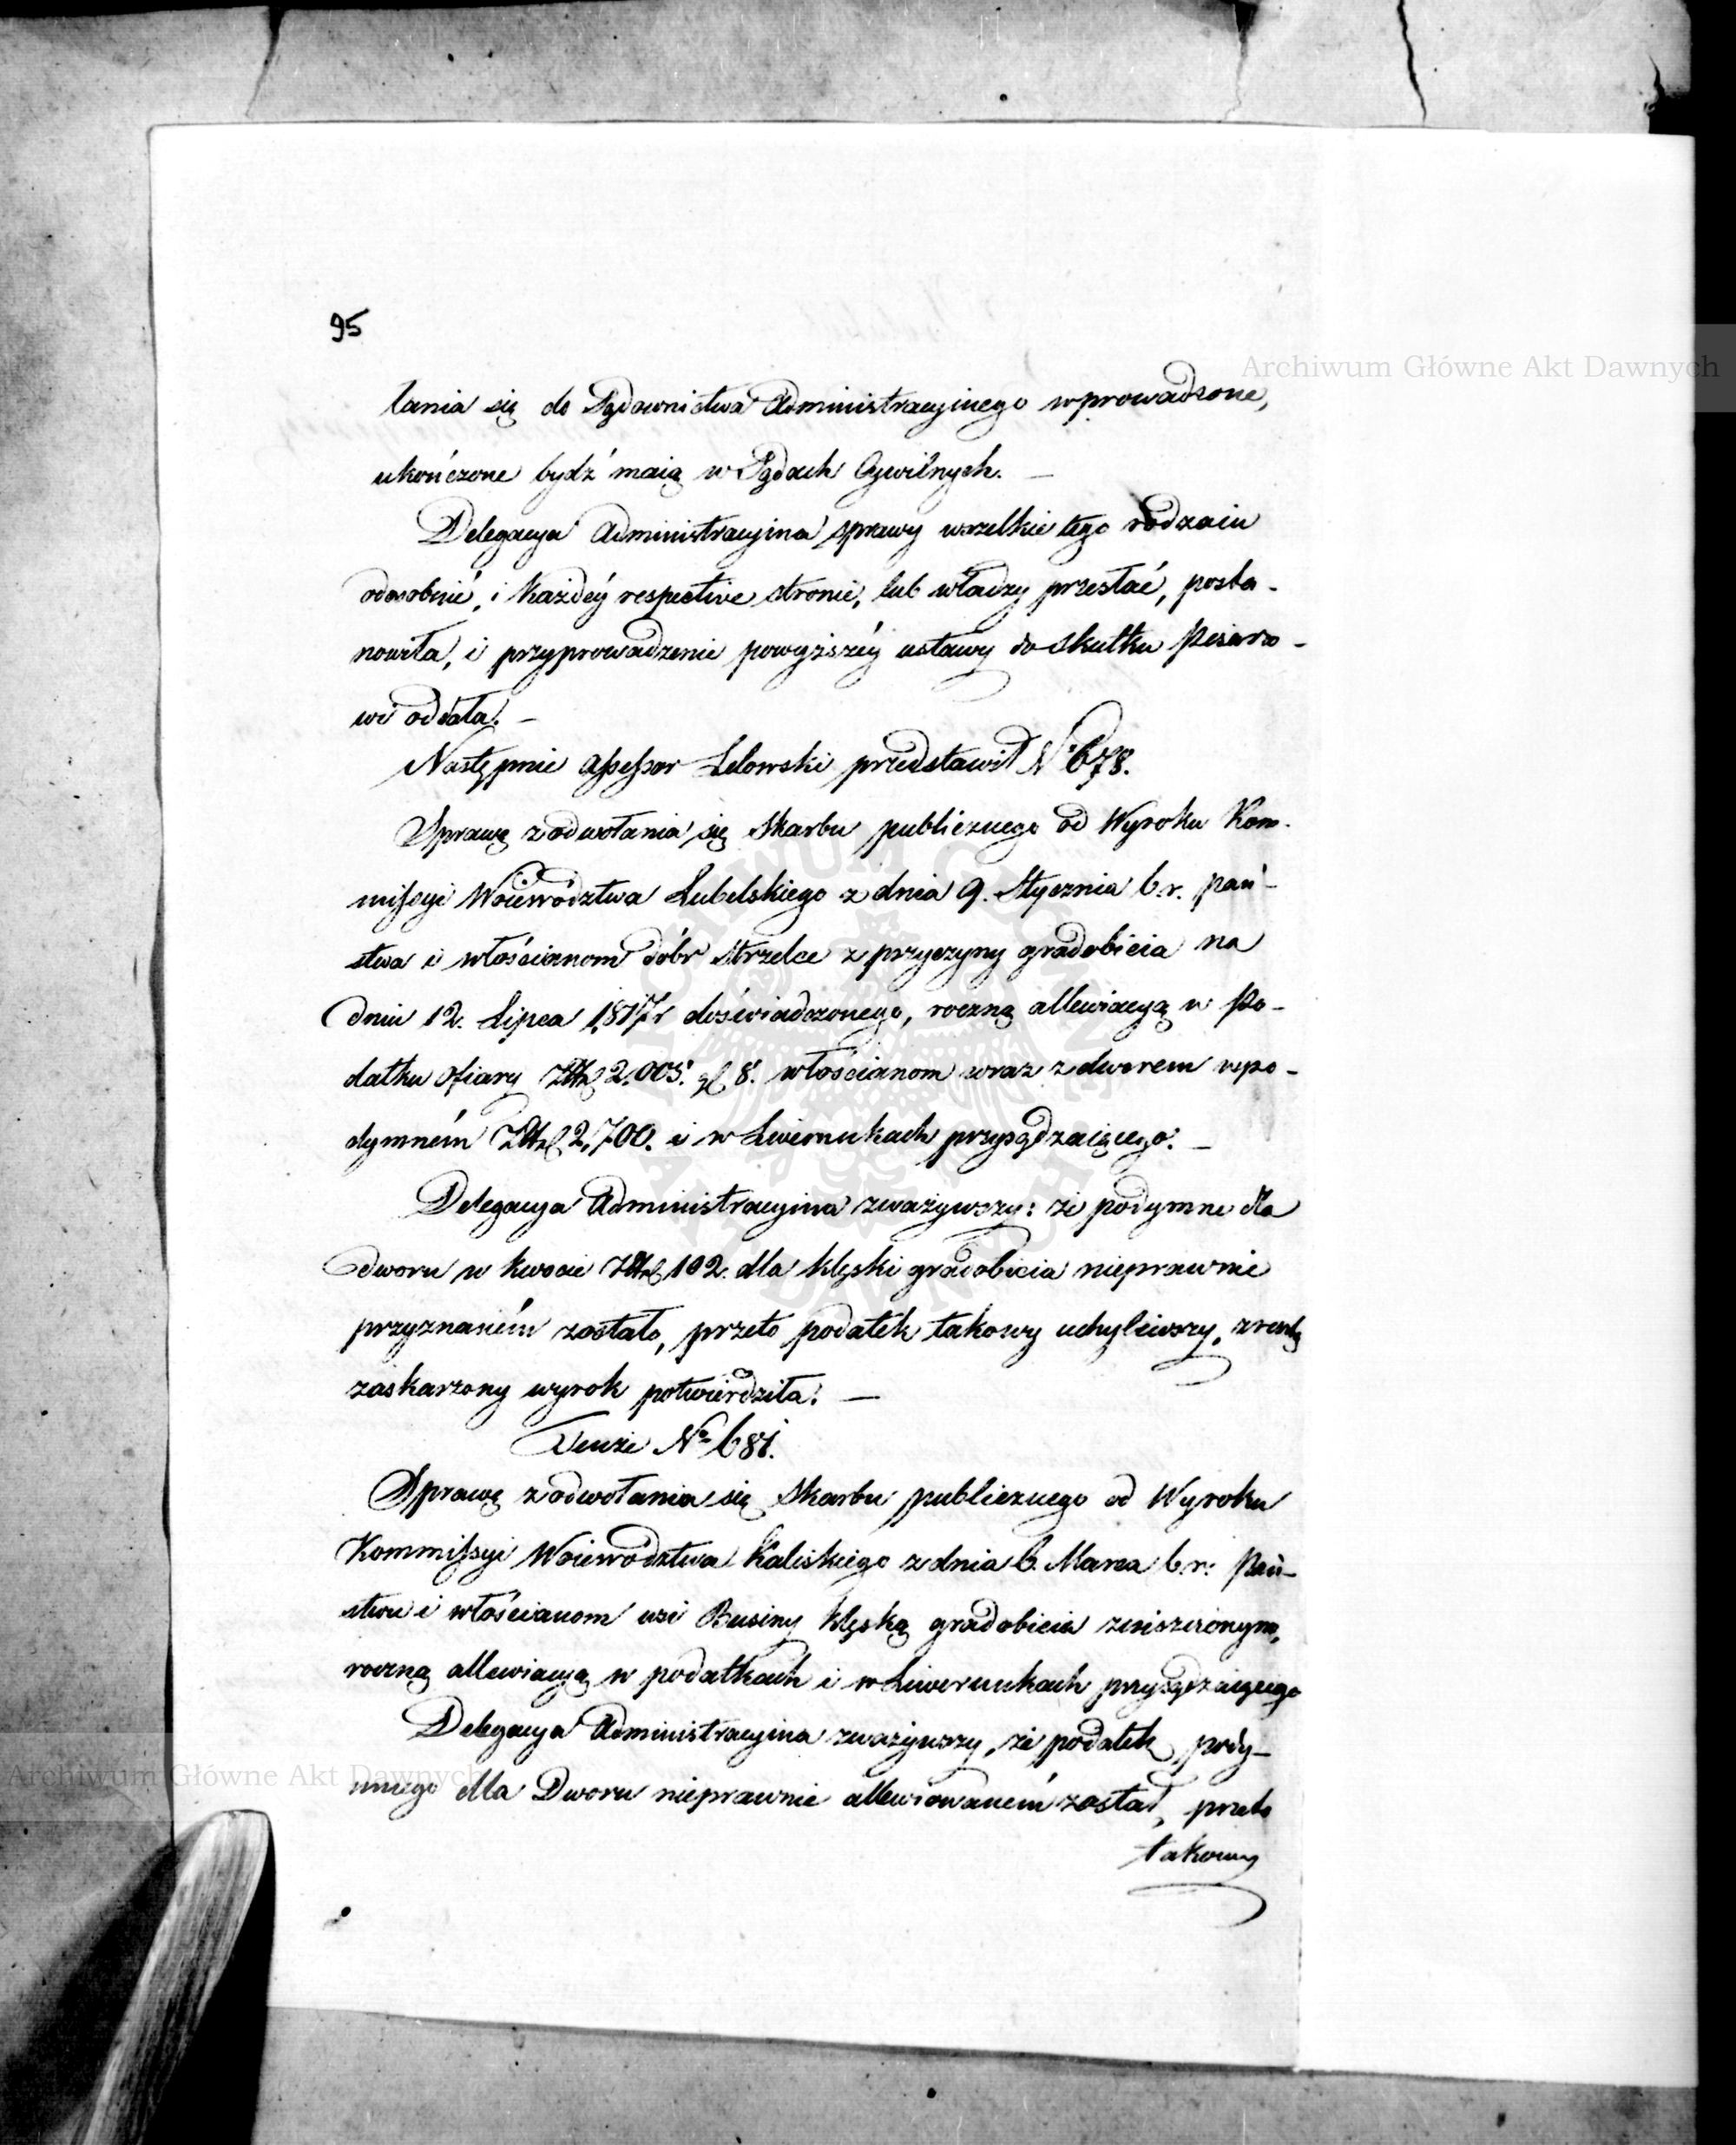 95
Archiwum Główne Akt Dawnych
łania się do Sądownictwa Administracyinego wprowadzone,
ukończone bydź maią w Sądach Cywilnych. —
Delegacya Administracyina sprawy wszelkie tego rodzaiu
odosobnić, i każdéy respective stronie, lub władzy przesłać, posta-
nowiła, i przyprowadzenie powyższéy ustawy do skutku Pisarzo-
wi oddała. —
Następnie Assessor Lelowski przedstawił No 678.
Sprawę z odwołania się Skarbu publicznego od Wyroku Kom-
missyi Woiewództwa Lubelskiego z dnia 9. Stycznia b. r. pań-
stwu i włościanom dóbr Strzelce z przyczyny gradobicia na
dniu 12. Lipca 1817r doświadczonego, roczną allewiacyą w Po-
datku ofiary Złł 2,005. gr 8. włościanom wraz z dworem w po-
dymném Złł 2,700. i w Liwerunkach przysądzaiącego. —
Delegacya Administracyina zważywszy: że podymne dla
dworu w kwocie Złł 102. dla klęski gradobicia nieprawnie
przyznaném zostało, przeto podatek takowy uchyliwszy, zresztą
zaskarżony wyrok potwierdziła. —
Tenże No 681.
Sprawę z odwołania się Skarbu publicznego od Wyroku
Kommissyi Woiewództwa Kaliskiego z dnia 6. Marca b. r. Pań-
stwu i włościanom wsi Businy klęską gradobicia zniszczonym,
roczną allewiacyą w podatkach i w Liwerunkach przysądzaiącego
Delegacya Administracyina zważywszy, że podatek pody-
mnego dla Dworu nieprawnie allewiowaném został, przeto
takowy
Archiwum Główne Akt Dawnych